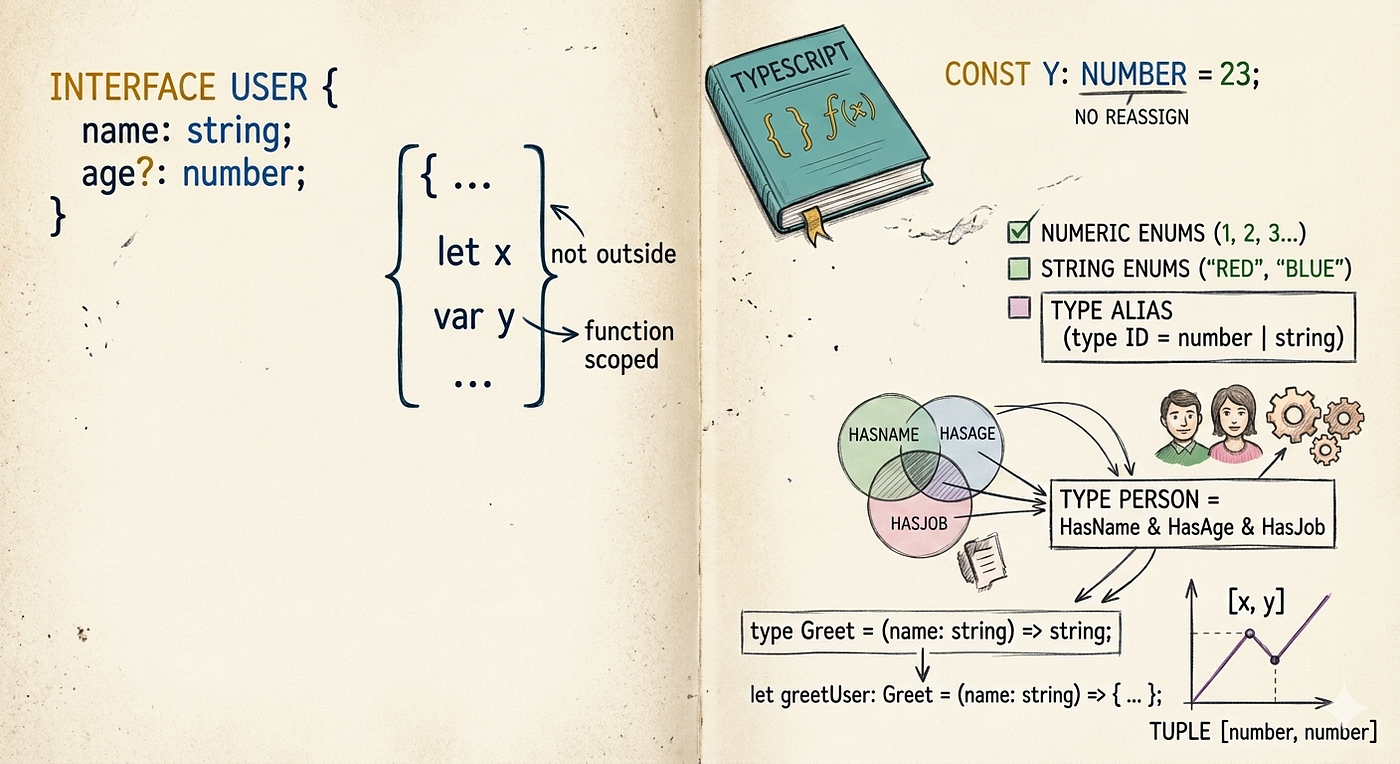 INTERFACE USER {
name: string;
age?: number;
}
{ ...
let x
var y
...
not outside
function
scoped
TYPESCRIPT
{ } f(x)
CONST Y: NUMBER = 23;
NO REASSIGN
NUMERIC ENUMS (1, 2, 3...)
STRING ENUMS ("RED", "BLUE")
TYPE ALIAS
(type ID = number | string)
HASNAME
HASAGE
HASJOB
TYPE PERSON =
HasName & HasAge & HasJob
type Greet = (name: string) => string;
let greetUser: Greet = (name: string) => { ... };
[x, y]
TUPLE [number, number]